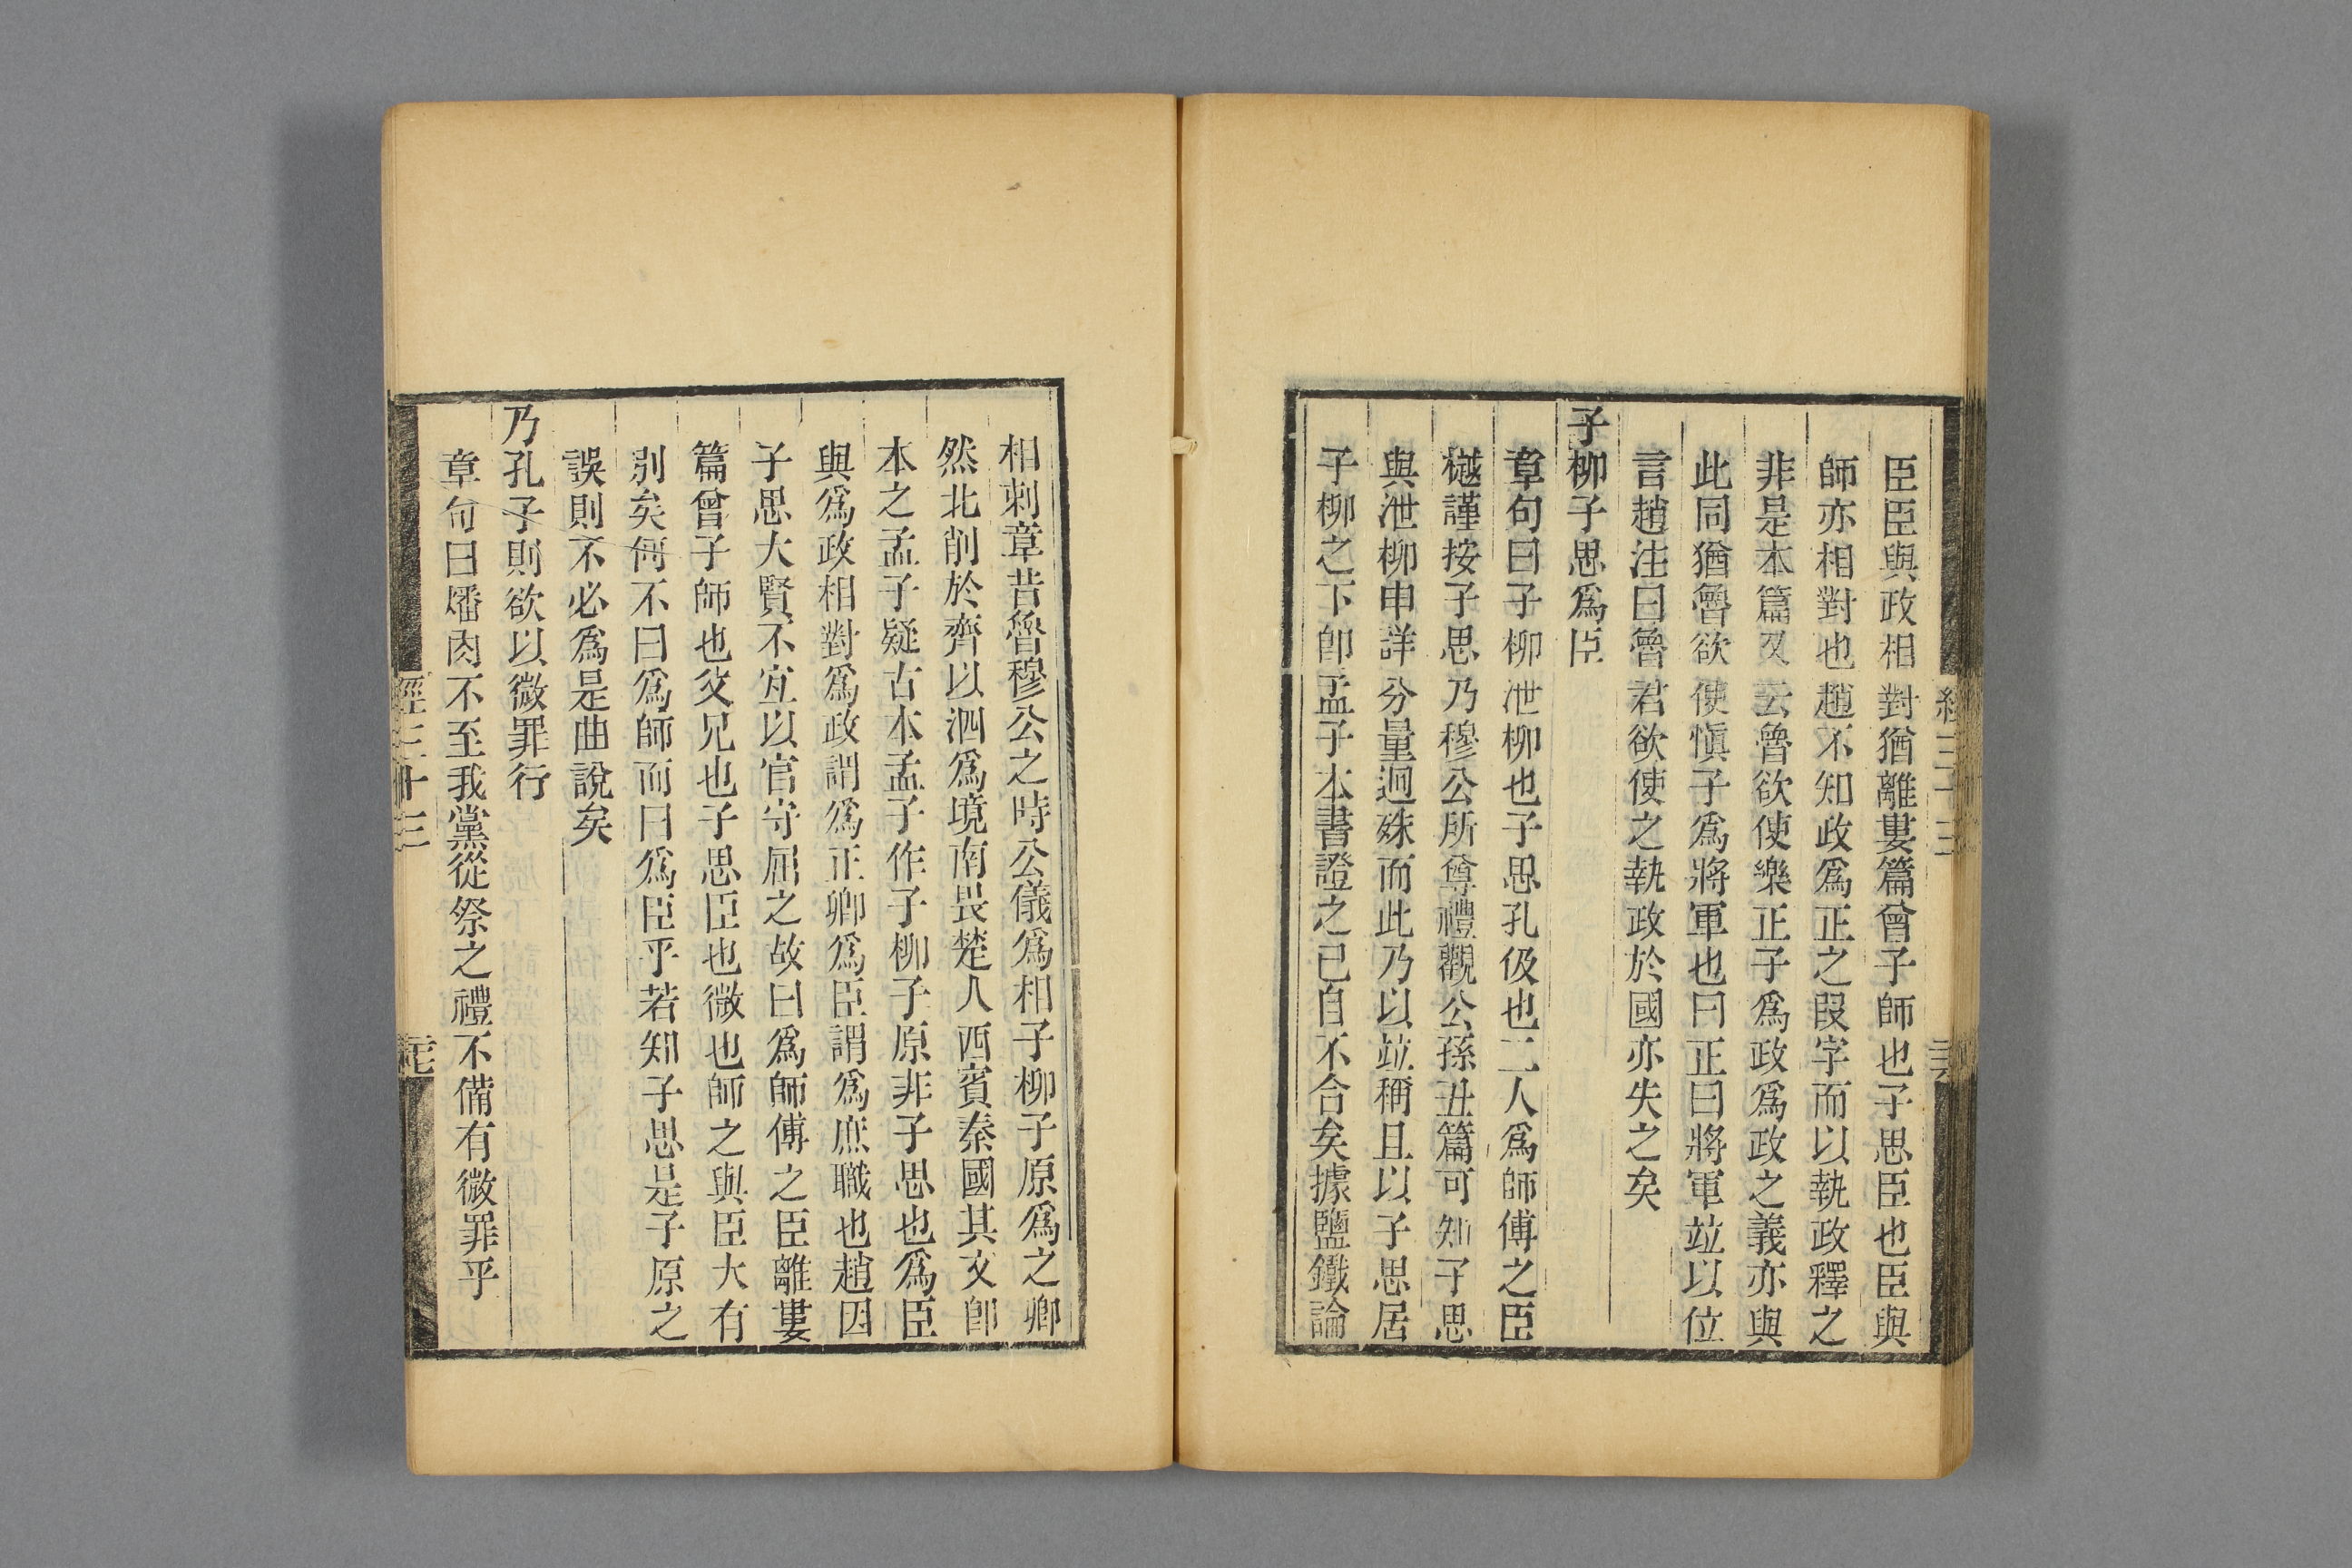 臣臣與政相對猶離婁篇曾子師也子思臣也臣與
師亦相對也趙不知政爲正之叚字而以執政釋之
非是本篇又云魯欲使樂正子爲政爲政之義亦與
此同猶魯欲使愼子爲將軍也曰正曰將軍竝以位
言趙注曰魯君欲使之執政於國亦失之矣
子柳子思爲臣
章句曰子柳泄柳也子思孔伋也二人爲師傅之臣
樾謹按子思乃穆公所尊禮觀公孫丑篇可知子思
與泄柳申詳分量迥殊而此乃以竝稱且以子思居
子柳之下卽孟子本書證之已自不合矣據鹽鐵論
相刺章昔魯穆公之時公儀爲相子柳子原爲之卿
然北削於齊以泗爲境南畏楚人西賓秦國其文卽
本之孟子疑古本孟子作子柳子原非子思也爲臣
與爲政相對爲政謂爲正卿爲臣謂爲庶職也趙因
子思大賢不宜以官守屈之故曰爲師傅之臣離婁
篇曾子師也父兄也子思臣也微也師之與臣大有
別矣何不曰爲師而曰爲臣乎若知子思是子原之
誤則不必爲是曲說矣
乃孔子則欲以微罪行
章句曰燔肉不至我黨從祭之禮不備有微罪乎
經三十三